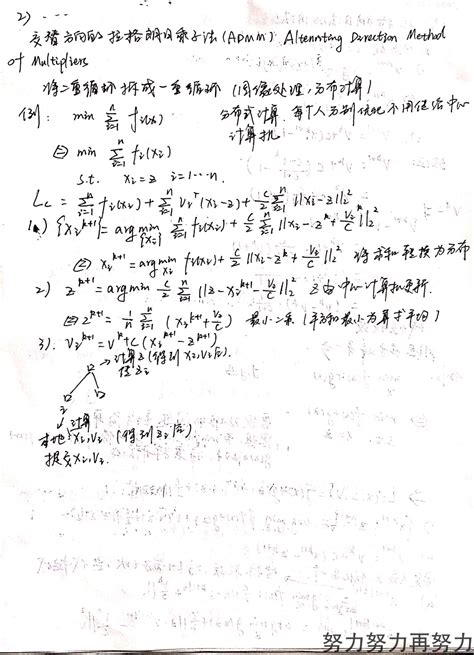 2) ...
交替方向的拉格朗日乘子法 (ADMM) Alternating Direction Method
of Multipliers
将二重循环拆成一重循环 (图像处理, 分布计算)
例: min Σ_{i=1}^{n} f_i(x) 分布式计算. 每个人分别优化 不用给中心
计算机
⇔ min Σ_{i=1}^{n} f_i(x_i)
s.t. x_i = z i=1···n.
L_c = Σ_{i=1}^{n} f_i(x_i) + Σ_{i=1}^{n} v_i^T(x_i-z) + c/2 Σ_{i=1}^{n} ||x_i-z||_2^2
1.) {x_i^{k+1}} = argmin_{{x_i}} Σ_{i=1}^{n} f_i(x_i) + c/2 Σ_{i=1}^{n} ||x_i-z^k+v_i^k/c||_2^2
⇔ x_i^{k+1} = argmin_{x_i} f_i(x_i) + c/2 ||x_i-z^k+v_i^k/c||_2^2 将求和转换为分布
2) z^{k+1} = argmin c/2 Σ_{i=1}^{n} ||z-x_i^{k+1}-v_i^k/c||_2^2 z由中心计算机更新.
⇔ z^{k+1} = 1/n Σ_{i=1}^{n} (x_i^{k+1}+v_i^k/c) 最小二乘 (平方和最小为算术平均)
3). v_i^{k+1} = v_i^k+c(x_i^{k+1}-z^{k+1})
→计算z (得到x_i,v_i后).
计算
本地 x_i,v_i (得到z后)
提交x_i,v_i.
努力努力再努力